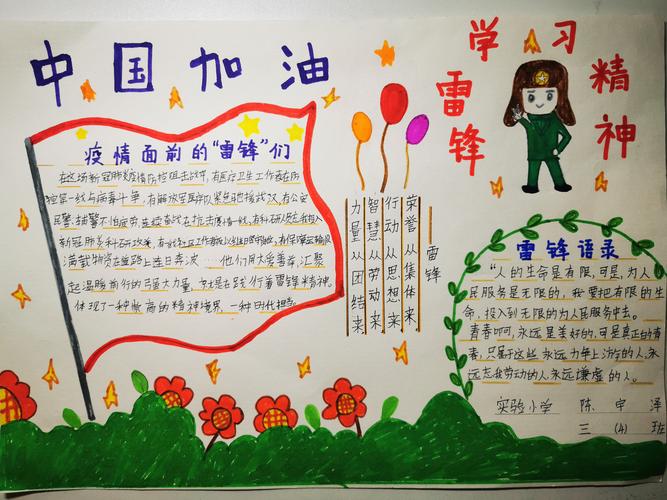 中国加油
学习
雷锋
精神
疫情面前的“雷锋”们
在这场新冠肺炎疫情防控阻击战中,有医疗卫生工作者在防
控第一线与病毒斗争,有解放军医疗队紧急驰援武汉,有公安
民警、辅警不怕疲劳、连续奋战在抗击疫情一线,有科研人员在投入
新冠肺炎科研攻关,有
满载物资在路上连日奔波……他们用大爱善举,汇聚
起温暖前行的强大力量,好是在践行着雷锋精神。
体现了一种崇高的精神境界,一种时代担当。
荣誉从集体来
行动从思想来
智慧从劳动来
力量从团结来
雷锋
雷锋语录
“人的生命是有限,可是,为人
民服务是无限的,我要把有限的生
命,投入到无限的为人民服务中去。
青春啊,永远是美好的,可是真正的青
春,只属于这些永远力争上游的人,永
远忘我劳动的人,永远谦虚的人。
实验小学 陈宇泽
三(4)班